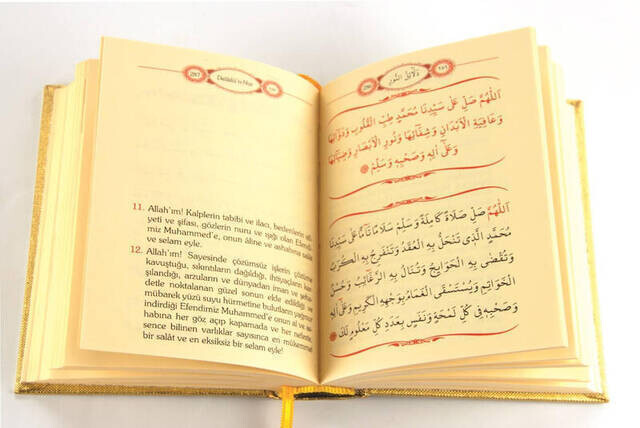 287
Delâilü'n-Nur
11. Allah'ım! Kalplerin tabibi ve ilacı, bedenlerin afi-
yeti ve şifası, gözlerin nuru ve ışığı olan Efendi-
miz Muhammed'e, onun âline ve ashabına salât
ve selam eyle.
12. Allah'ım! Sayesinde çözümsüz işlerin çözüme
kavuştuğu, sıkıntıların dağıldığı, ihtiyaçların kar-
şılandığı, arzuların ve dünyadan iman ve şeha-
detle noktalanan güzel sonun elde edildiği ve
mübarek yüzü suyu hürmetine bulutların yağmur
indirdiği Efendimiz Muhammed'e onun al ve as-
habına her göz açıp kapamada ve her nefeste,
sence bilinen varlıklar sayısınca en mükemmel
bir salât ve en eksiksiz bir selam eyle!
دَلَائِلُ النُّورِ
اَللّٰهُمَّ صَلِّ عَلٰى سَيِّدِنَا مُحَمَّدٍ طِبِّ الْقُلُوبِ وَدَوَائِهَا
وَعَافِيَةِ الْأَبْدَانِ وَشِفَائِهَا وَنُورِ الْأَبْصَارِ وَضِيَائِهَا
وَعَلٰى اٰلِهِ وَصَحْبِهِ وَسَلِّمْ
اَللّٰهُمَّ صَلِّ صَلَاةً كَامِلَةً وَسَلِّمْ سَلَامًا تَامًّا عَلٰى سَيِّدِنَا
مُحَمَّدٍ الَّذِى تَنْحَلُّ بِهِ الْعُقَدُ وَتَنْفَرِجُ بِهِ الْكُرَبُ
وَتُقْضٰى بِهِ الْحَوَايِجُ وَتُنَالُ بِهِ الرَّغَائِبُ وَحُسْنُ
الْخَوَاتِمِ وَيُسْتَسْقَى الْغَمَامُ بِوَجْهِهِ الْكَرِيمِ وَعَلٰى اٰلِهِ
وَصَحْبِهِ فِى كُلِّ لَمْحَةٍ وَنَفَسٍ بِعَدَدِ كُلِّ مَعْلُومٍ لَكَ